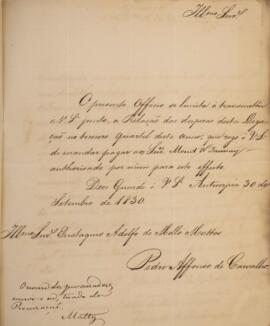 Illmo Senr.
O presente Officio se limita a transmittir
à V. Sª junto, a Relação das despezas desta Lega-
ção no terceiro quartel deste anno, que rogo à V. Sª
de mandar pagar ao Snr.
authorisado por mim para este effeito.
Deos Guarde à V. Sª Antuerpia 30 de
Setembro de 1830.
Illmo Senr. Eustaquio Adolfo de Mello Mattos
Pedro Affonso de Carvalho
Mattos